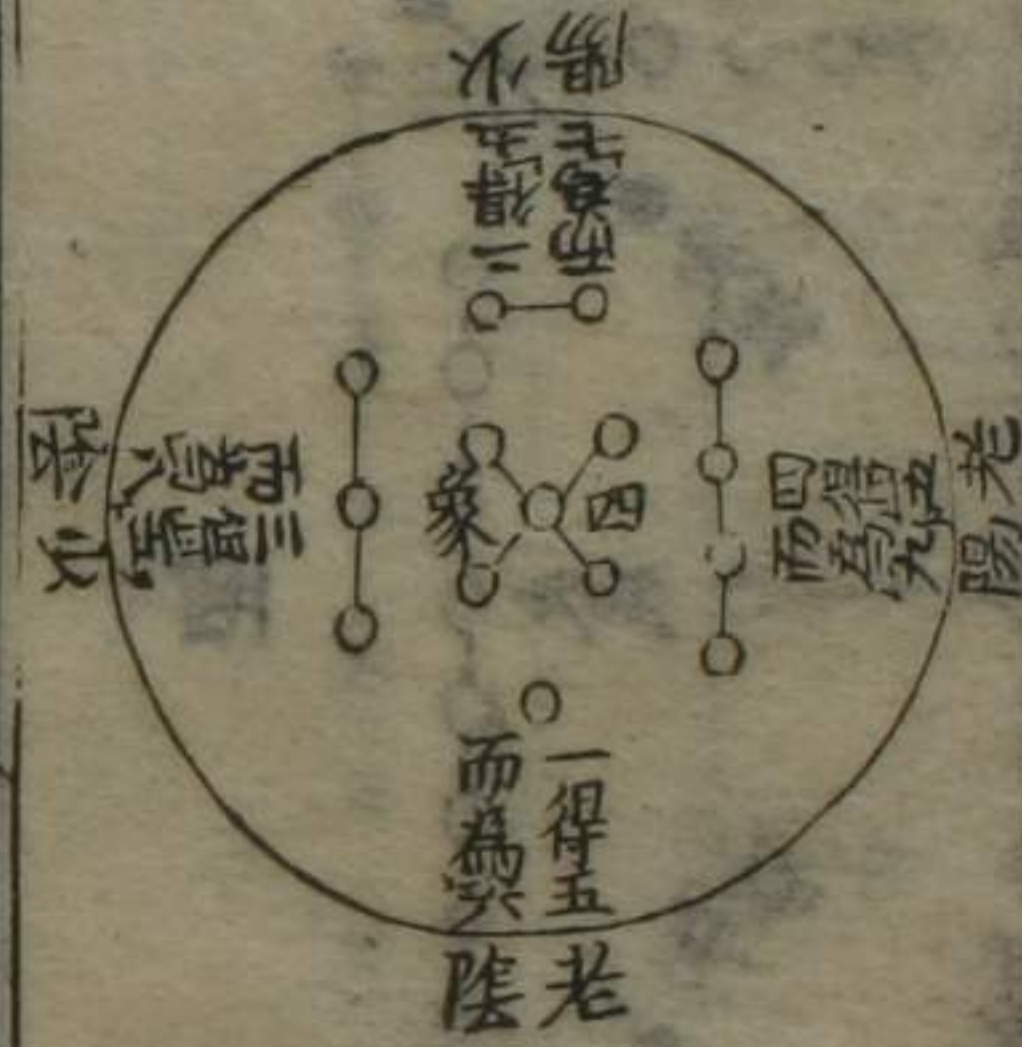 少陽
二得五
而為七
老陽
四得五
而為九
四象
少陰
三得五
而為八
一得五
而為六
老陰